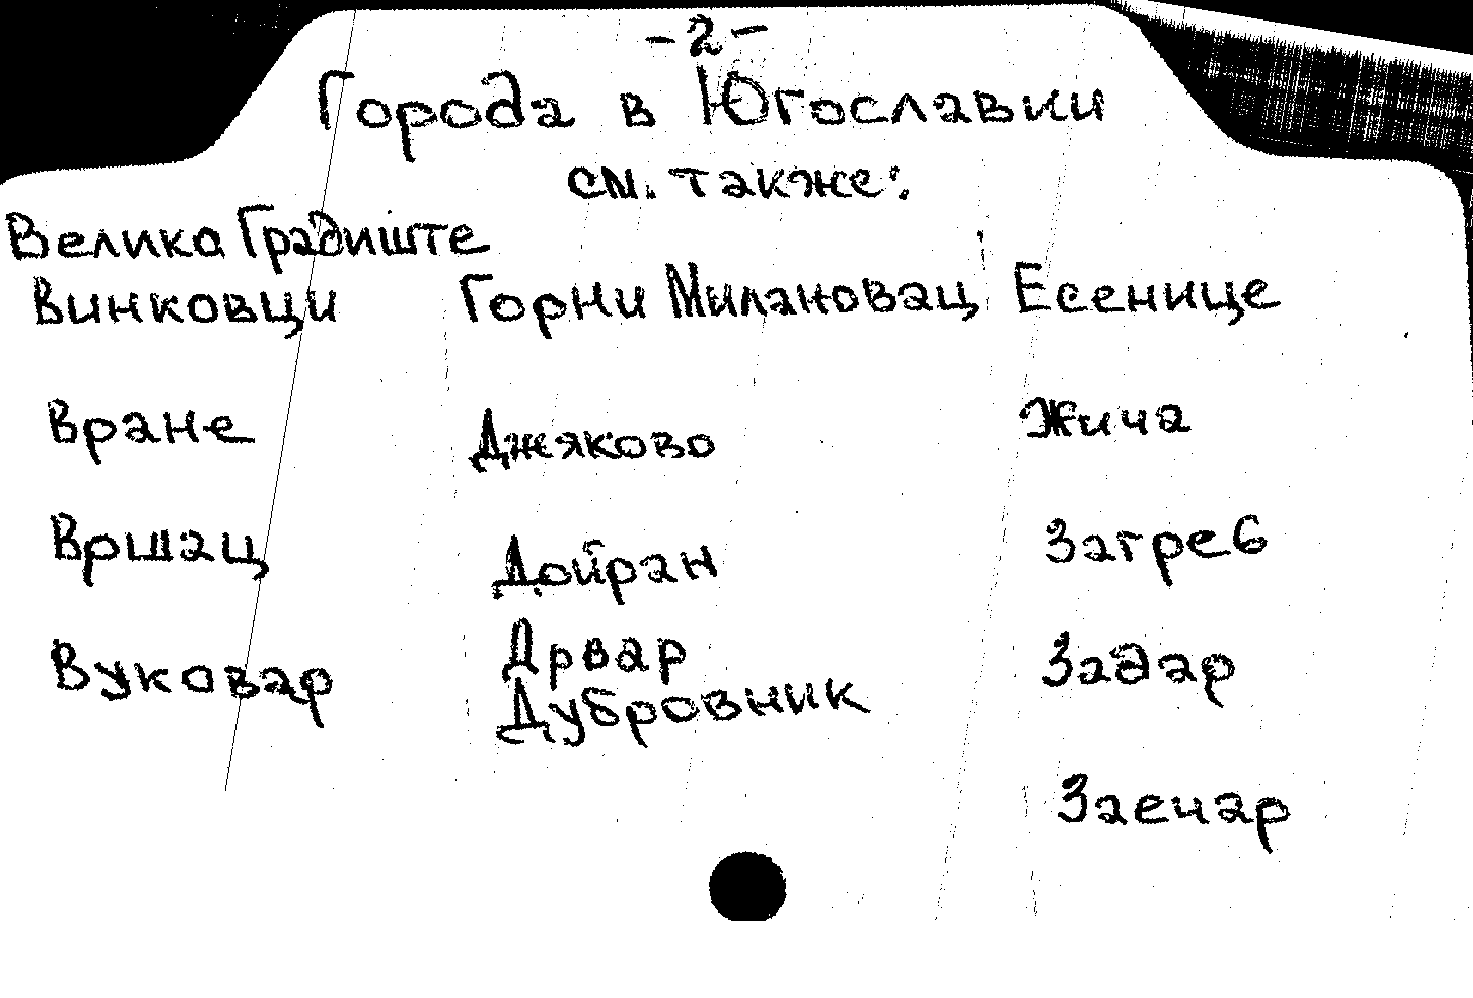 -2-
Города в Югославии
см. также:
Велико Градиште
Винковци
Вране
Вршац
Вуковар
Горни Милановац
Джяково
Дойран
Дрвар
Дубровник
Есенице
Жича
Загреб
Задар
Заечар